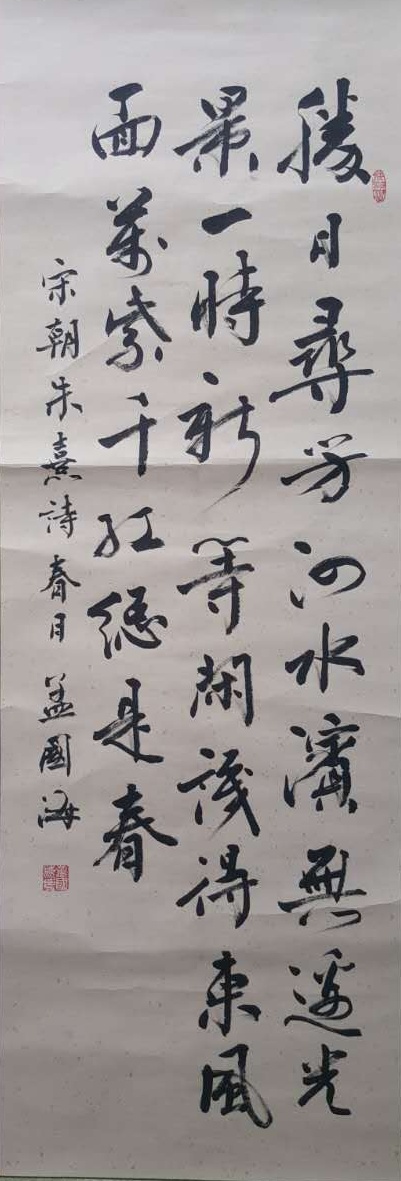 勝日尋芳泗水濱無邊光
景一時新等閑識得東風
面萬紫千紅總是春
宋朝朱熹詩春日 盖國海